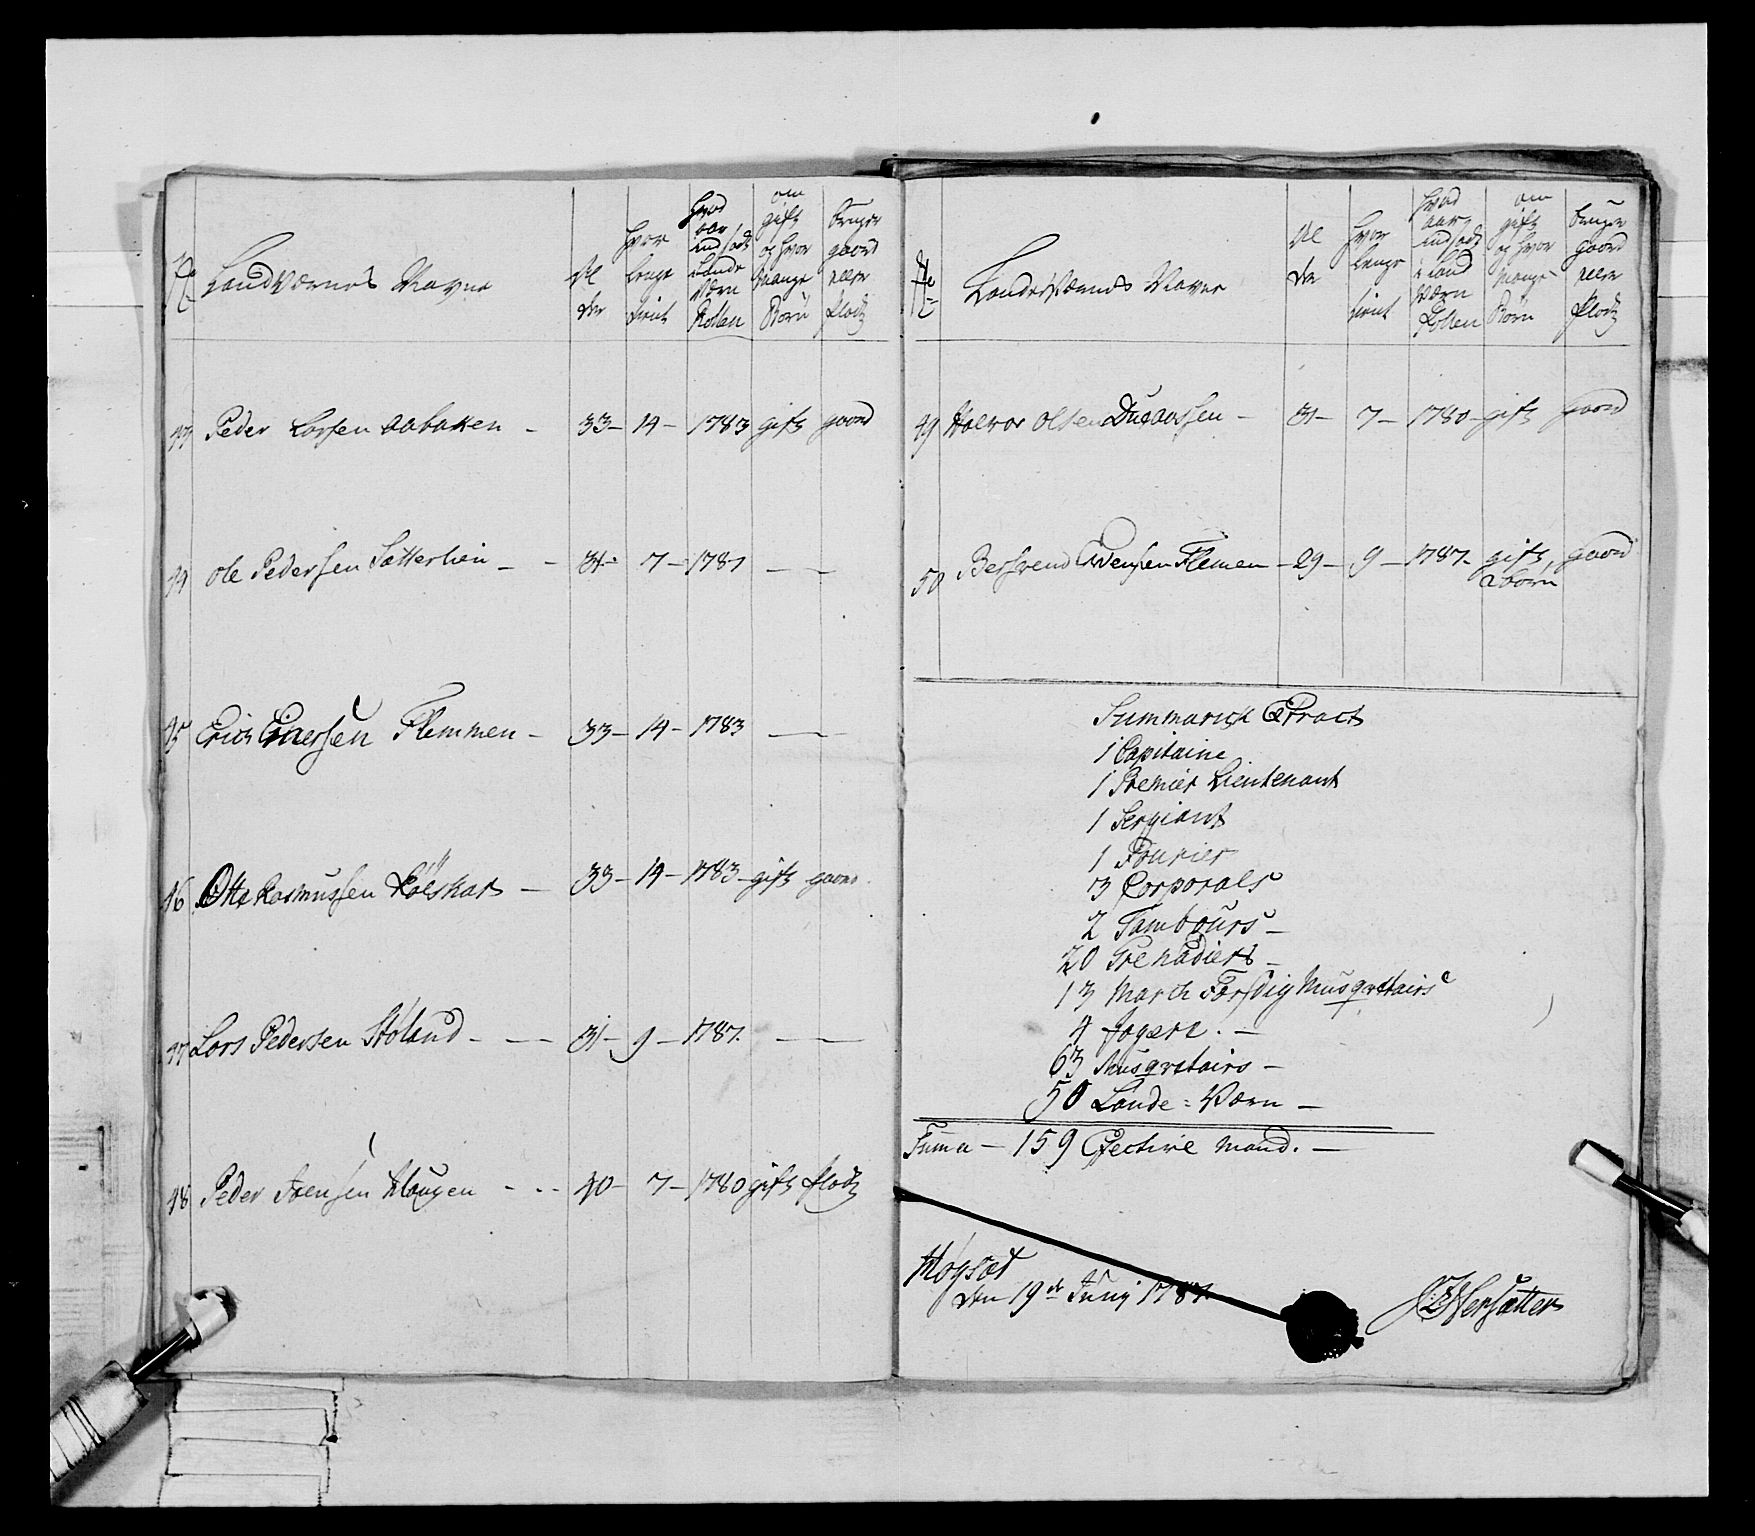 No LandVærnets Navne Al der hvor lenge tient hvad aar indsadt Lande Værn Rollen om gift og hvor mange Börn bruger gaard eller plads
43 Peder Larsen Aabakken - 33 - 14 - 1783 gift gaard
44 Ole Pedersen Sætterlien - - 31 - 7 - 1787 - -
45 Erich Einersen Flemmen - 33 - 14 - 1783 - -
46 Otte Rasmussen Kölskar - 33 - 14 - 1783 - gift gaard
47 Lars Pedersen Stöland - - - 31 - 9 - 1787. - -
48 Peder Iversen Hougen - - - 40 - 7 - 1780 gift plads
No LandeVærnets Navne Al der hvor lenge tient hvad aar indsadt i Land Værn Rollen om gift og hvor mange Börn bruger gaard eller plads
49 Halvor Olsen - 31 - 7 - 1780 - gift gaard
50 Flemen - 29 - 9 - 1787. gift, 2 börn gaard
Summarisk Extract
1 Capitaine
1 Premier Lieutenant
1 Sergiant
1 Fourier
3 Corporals
2 Tambours -
20 Grenadiers -
13 March Færdig Musqvetairs
4 Jægere. -
63 Musqvetairs -
50 Lande = Værn -
Suma - 159 Efective Mand. -
Höysæt
den 19de Junij 1787.